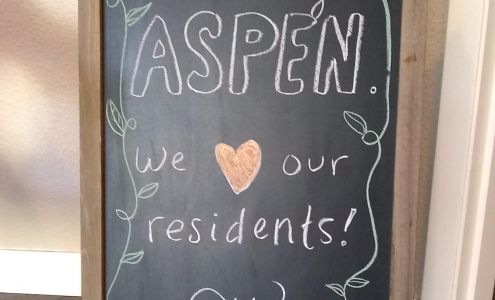 ASPEN.
we our
residents!